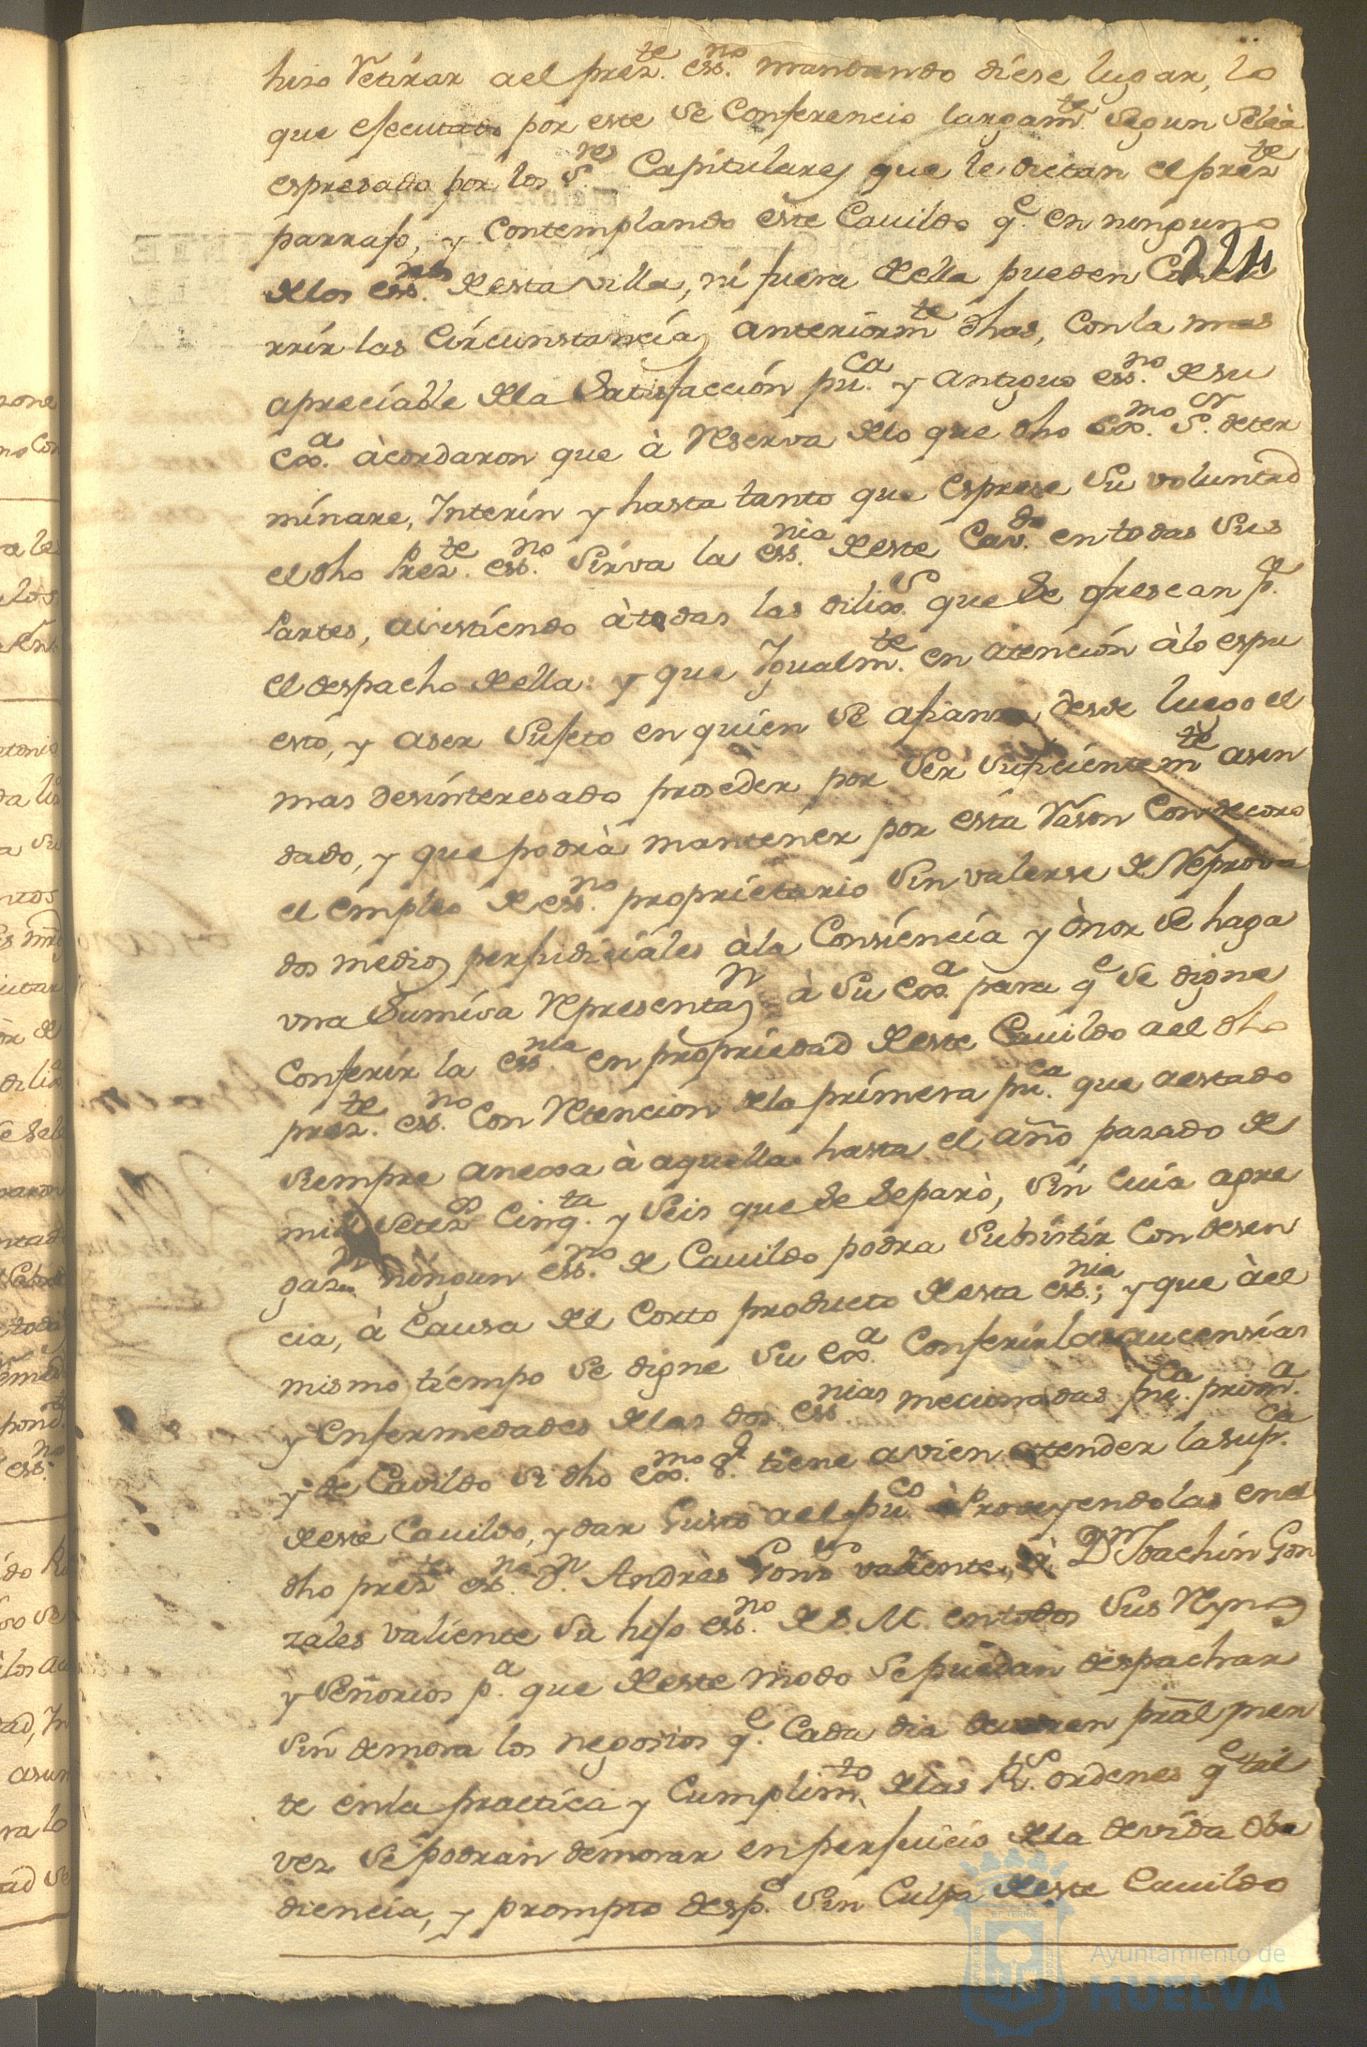 hiso retirar a el prez.te ess.no mandando diese lugar, lo
que esecutado por este se Conferencio largam.te segun se le à
espresado por los S.res Capitulares que le dictan el prez.te
parrafo, y Contemplando este Cavildo q.e en ninguno
224
de los ess.nos de esta villa, ni fuera de ella pueden Concu
rrir las Circunstancias anteriorm.te dhas, Con la mas
apreciable de la Satisfacción pu.ca y antiguo ess.no de su
Cx.a àcordaron que à reserva de lo que dho Exx.mo S.or deter
mináre, Interin y hasta tanto que esprese su voluntad
el dho Prez.te ess.no sirva la ess.nia de este Cav.do en todas sus
Partes, asistiendo à todas las dilix.s que se ofrescan p.a
el despacho de ella: y que Igualm.te en atención à lo espu
esto, y a ser sujeto en quien se afianza desde luego el
mas desinteresado proseder, por ser suficientem.te asen
dado, y que podrà mantener por esta rason Con decoro
el empleo de ess.no proprietario sin valerse de reprova
dos medios perjudiciales à la Consiencia y ònor se haga
una Sumisa representas.n à su Exx.a para q.e se digne
Conferir la ess.nia en propriedad de este Cavildo a el dho
prez.te ess.no Con retencion de la primera pu.ca que a estado
siempre anexsa à aquella hasta el año pasado de
mil setez.os Cinq.ta y seis que se Separò, sin cuia agre
gaz.n ningun ess.no de Cavildo podra subsistir Con desen
cia, à Causa del Corto producto de esta ess.nia; y que à el
mismo tiempo se digne su Exx.a Conferir las aucensias
y enfermedades de las dos ess.nias mecionadas pu.ca prim.a
y de Cavildo si dho exx.mo S.or tiene a vien atender la sup.ca
de este Cavildo, y dar Gusto a el pu.co Proveyendolas en el
dho prez.te ess.no d.n Andrès Gonz.s valiente, à D.n Joachin Gon
zales valiente su hijo ess.no de S. M. en todos sus Reynos
y señorios p.a que de este modo se puedan despachar
sin demora los negosios q.e Cada dia pral men
te en la practica y Cumplim.to de las R.s ordenes q.e tal
vez se podràn demorar en perjuicio de la devida obe
diencia, y prompto desp.o sin Culpa de este Cavildo
Ayuntamiento de
HUELVA